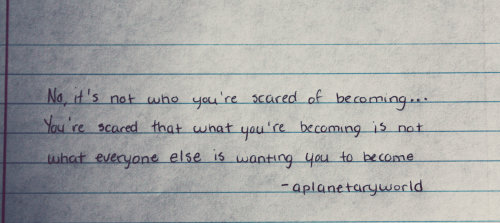 No, it's not who you're scared of becoming...
You're scared that what you're becoming is not
what everyone else is wanting you to become
-aplanetaryworld